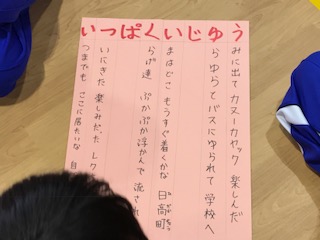 いっぱくいじゆう
みに出て カヌーカヤック 楽しんだ
らゆらと バスにゆられて 学校へ
まはどこ もうすぐ着くかな 日高町
らげ達 ぷかぷか浮かんで 流され
いにきた 楽しみだった レク
つまでも ここに居たいな 自